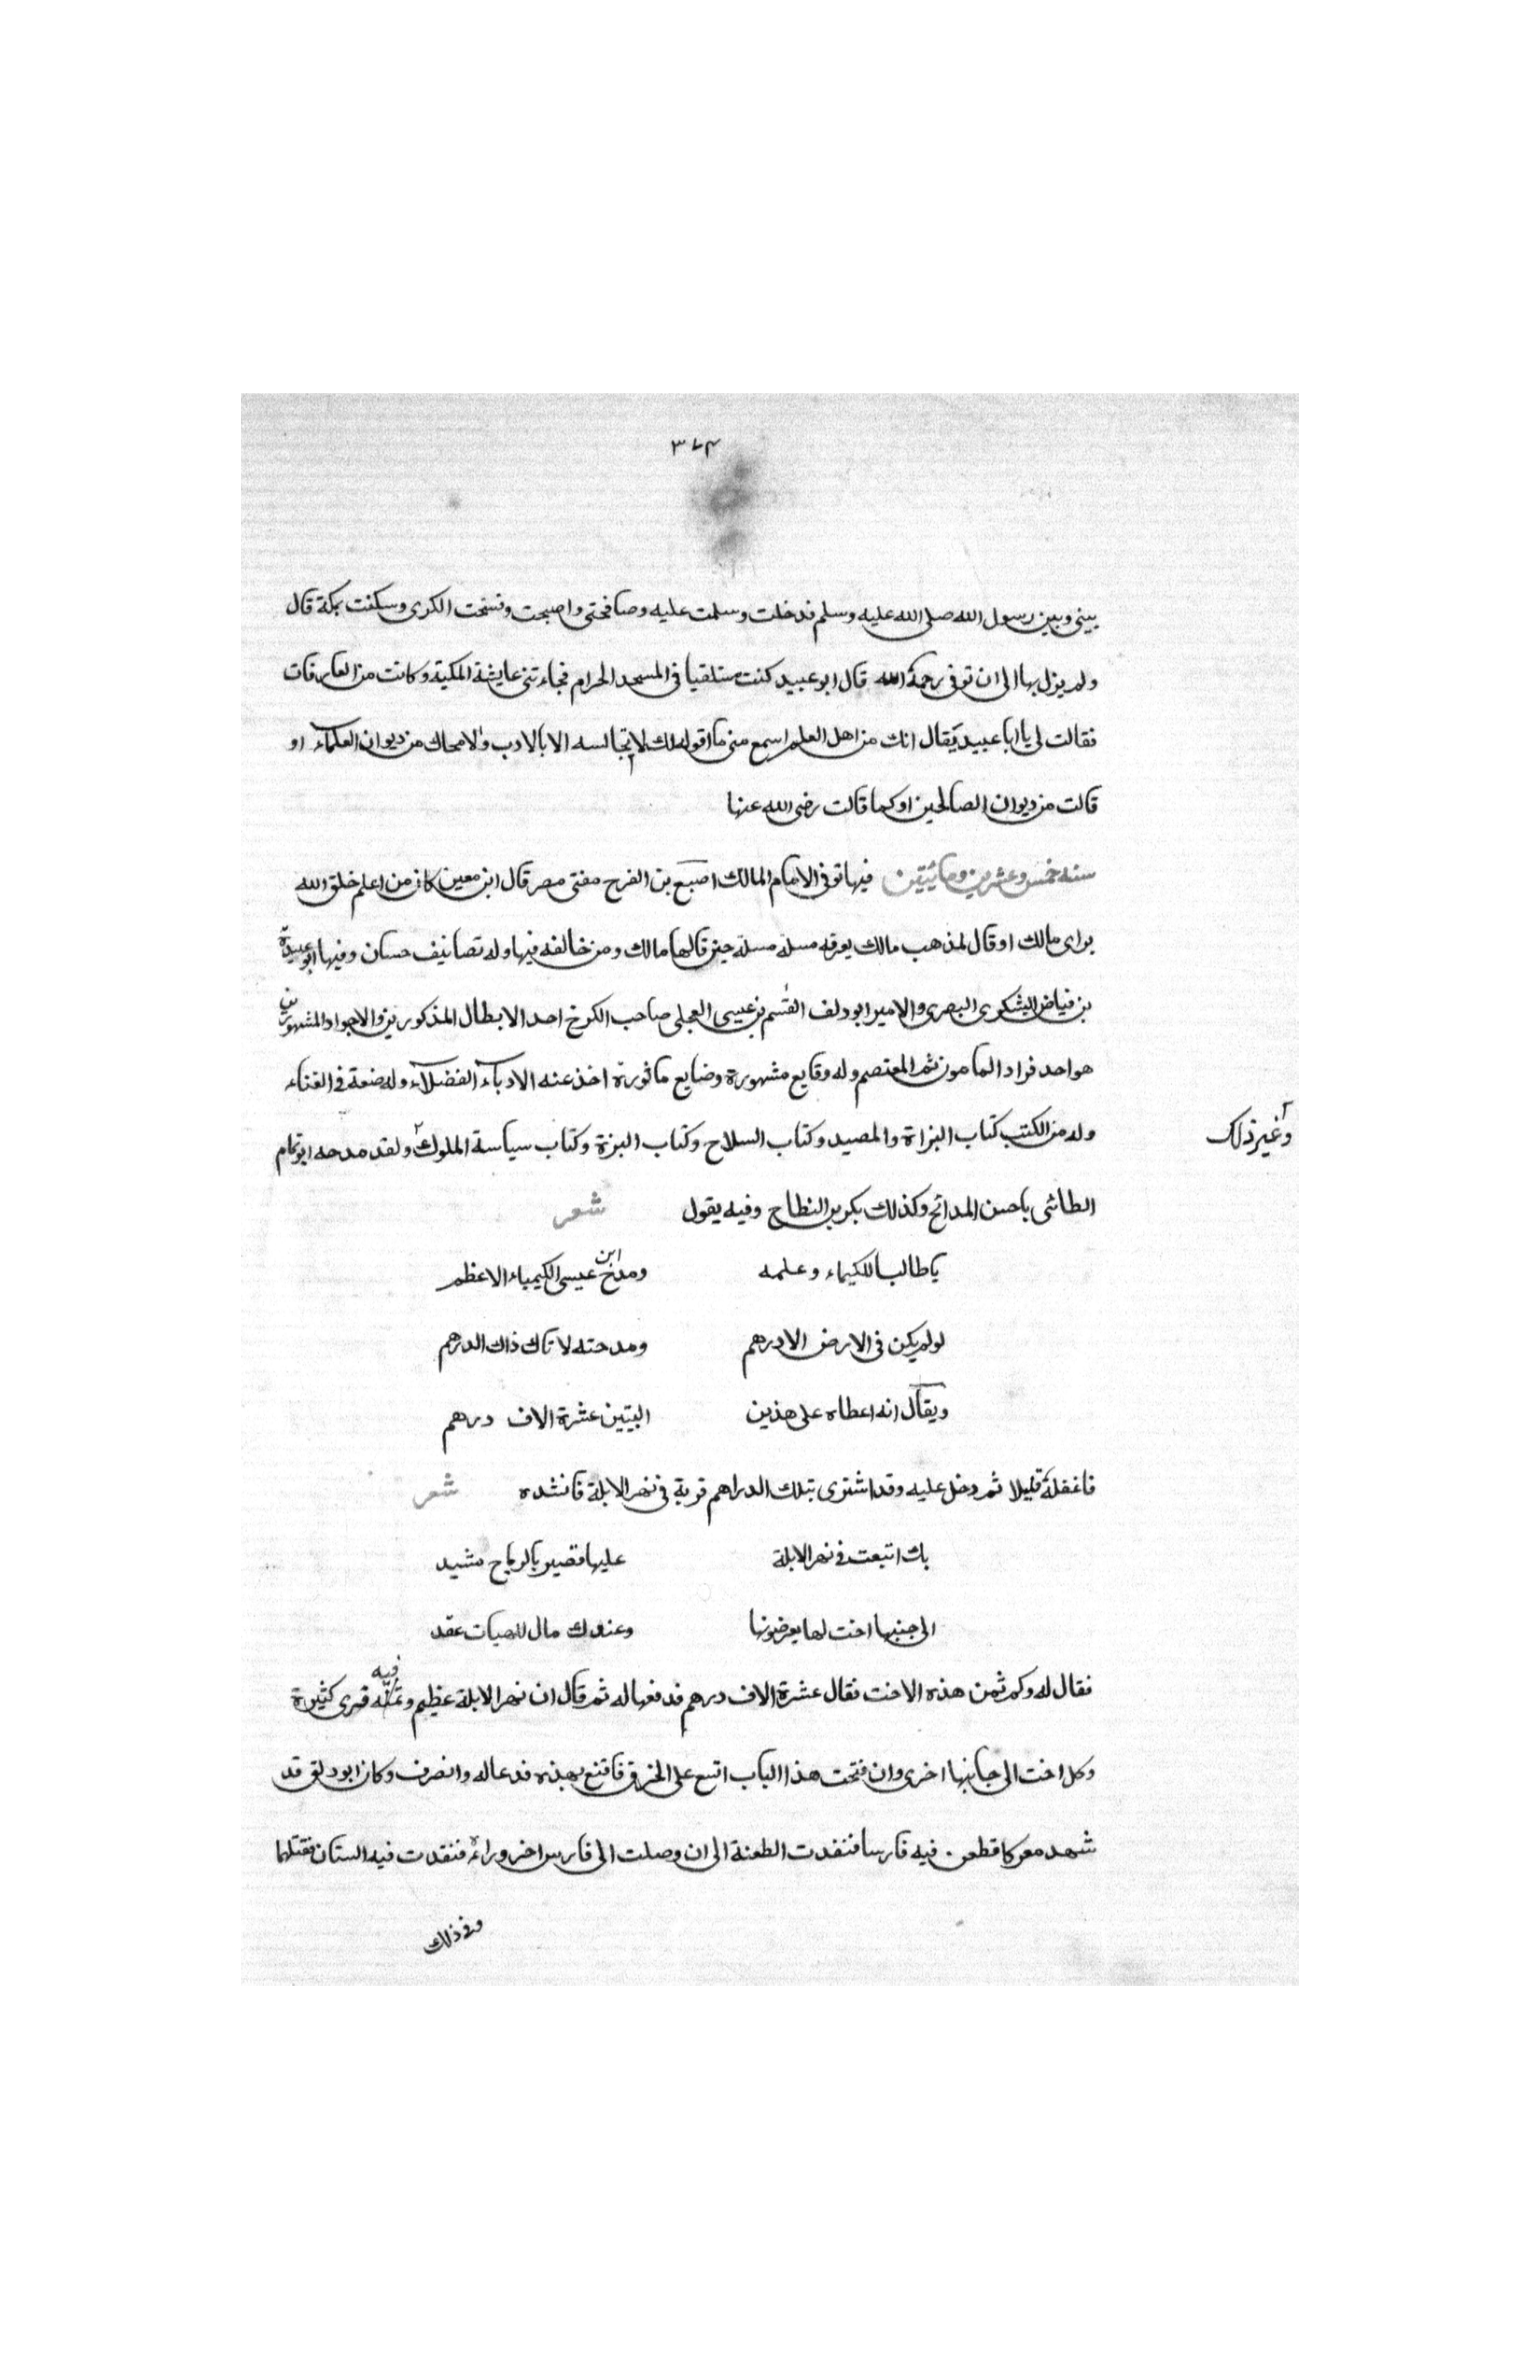 ٣٧٤
بيني وبين رسول الله صلى الله عليه وسلم فدخلت وسلمت عليه وصافحني واصبحت وفسخت الكرى وسكنت بمكة قال
ولم يزل بها الى ان توفي رحمة الله قال ابو عبيد كنت مستلقيا في المسجد الحرام فجاءتني عايشة المكية وكانت من العارفات
فقالت لي يا ابا عبيد يقال انك من اهل العلم اسمع مني ما اقوله لك لا تجالسه الا بالادب والا محاك من ديوان العلماء او
قالت من ديوان الصالحين او كما قالت رضي الله عنها
سنه خمس وعشرين ومائيتين فيها توفي الامام المالك اصبع بن الفرج مفتى مصر قال ابن معين كان من اعلم خلق الله
براى مالك او قال لمذهب مالك يعرفه مسلة مسلة حين قالها مالك ومن خالفه فيها وله تصانيف حسان وفيها ابو عبيدة
بن فياض اليشكرى البصرى والامير ابو دلف القسم بن عيسى العجلى صاحب الكرخ احد الابطال المذكورين والاجواد المشهورين
هو احد فراد المامون ثم المعتصم وله وقايع مشهورة وضايع ماثورة اخذ عنه الادباء الفضلاء وله ضعة في الغناء
وله من الكتب كتاب البزاة والمصيد وكتاب السلاح وكتاب البزة وكتاب سياسة الملوك ولقد مدحه ابو تمام
وغير ذلك
الطائى باحسن المدائح وكذلك بكر بن النطاح وفيه يقول شعر
ياطالبا للكيماء وعلمه ومدح ابن عيسى الكيمياء الاعظم
لو لم يكن في الارض الا درهم ومدحته لاتاك ذاك الدرهم
ويقال انه اعطاه على هذين البيتين عشرة الاف درهم
فاغفلة قليلا ثم دخل عليه وقد اشترى بتلك الدراهم قرية في نهر الابلة فانشده شعر
بك اتبعت في نهر الابلة عليها قصير بالرباح مشيد
الى جنبها اخت لها يعرضونها وعندك مال للهبات عقد
فقال له وكم ثمن هذه الاخت فقال عشرة الاف درهم فدفعها له ثم قال ان نهر الابلة عظيم و فيه قرى كثيرة
وكل اخت الى جانبها اخرى وان فتحت هذا الباب اتسع على الخرق فاقنع بهذه فدعا له وانصرف وكان ابو دلق قد
شهد معركا قطعن فيه فارسا فنفدت الطعنة الى ان وصلت الى فارس اخر وراءه فنفدت فيه الستان فقتلهما
وفي ذلك